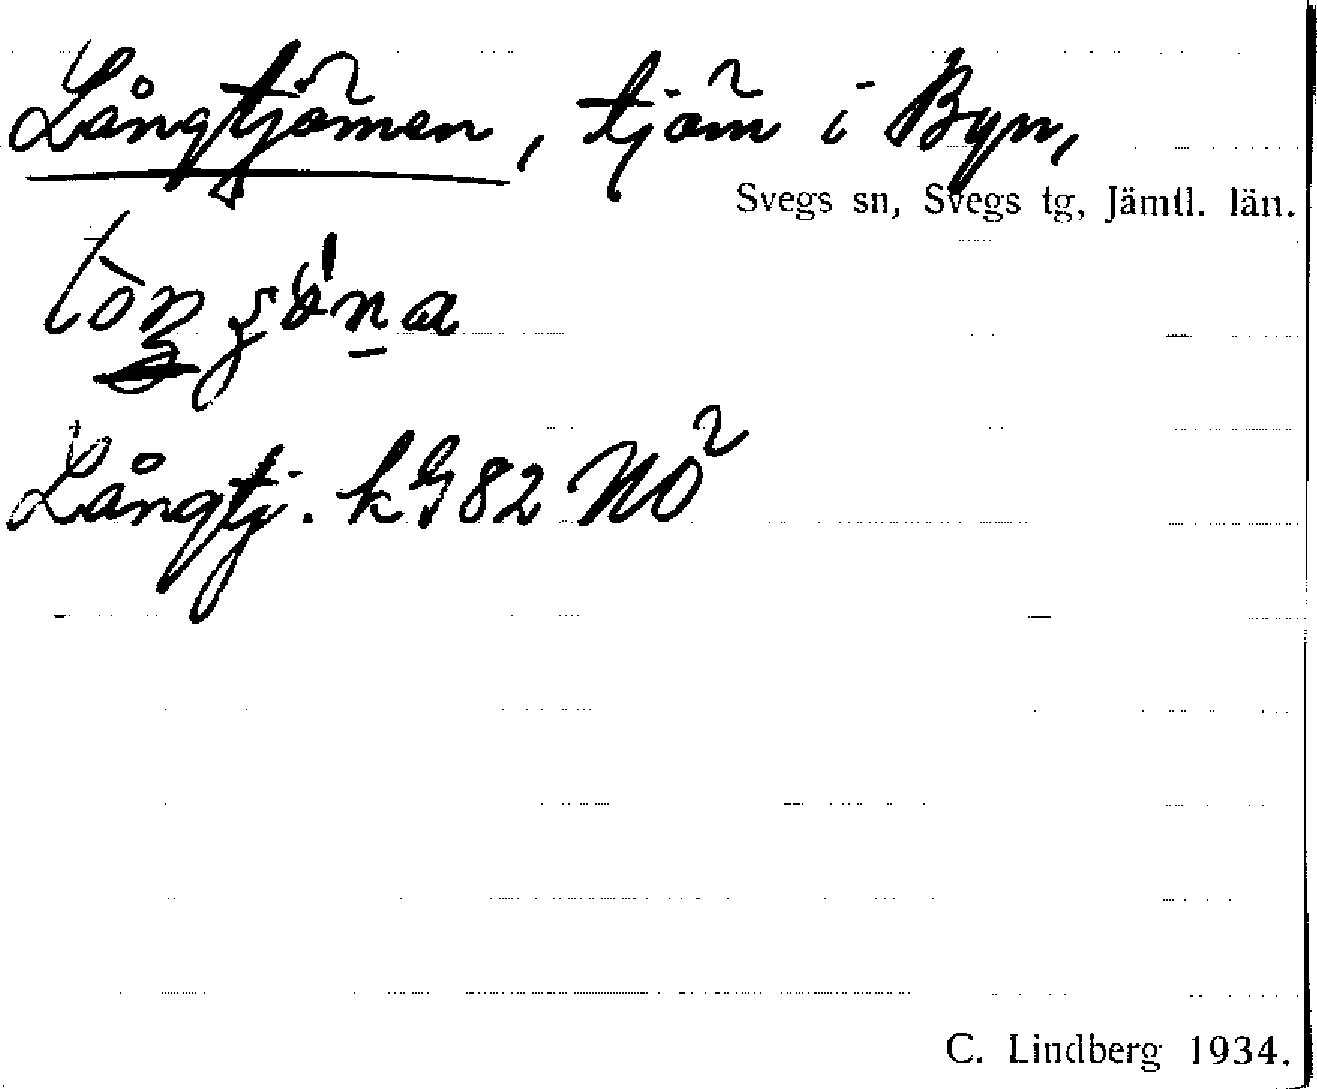 Långtjärnen, tjärn i Byn,
Svegs sn, Svegs tg, Jämtl. län.
Långtj. kG 82 NO
C. Lindberg 1934.